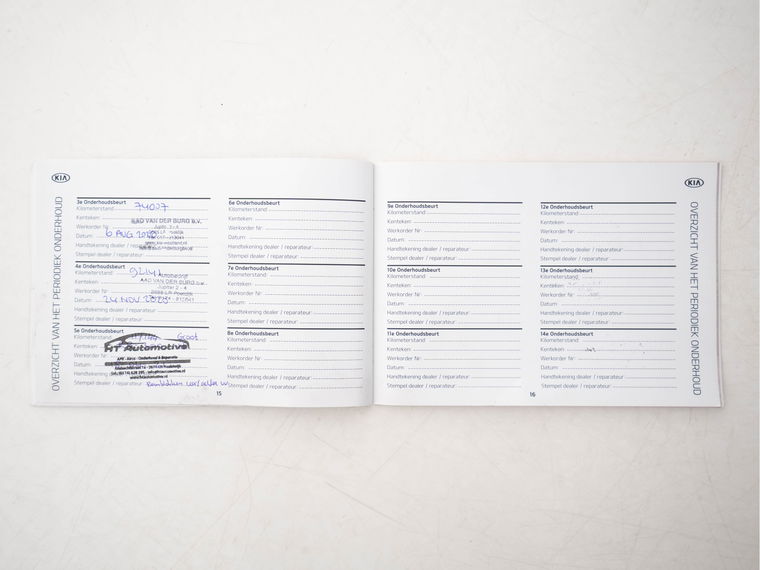 KIA
OVERZICHT VAN HET PERIODIEK ONDERHOUD
3e Onderhoudsbeurt
Kilometerstand 74007
Kenteken: AAD VAN DER BURG B.V.
Werkorder Nr Jupiter 2 - 4
Datum: 6 AUG
Handtekening dealer /
Stempel dealer / reparateur:
4e Onderhoudsbeurt
Kilometerstand
Kenteken: AAD VAN DER BURG B.V.
Werkorder Nr Jupiter 2 - 4
Datum: 24 NOV
Handtekening dealer / reparateur:
Stempel dealer / reparateur:
5e Onderhoudsbeurt
Kilometerstand Groot
Kenteken: HT Automotive
Werkorder
Datum:
Handtekening
Stempel dealer / reparateur:
6e Onderhoudsbeurt
Kilometerstand
Kenteken:
Werkorder Nr
Datum:
Handtekening dealer / reparateur:
Stempel dealer / reparateur:
7e Onderhoudsbeurt
Kilometerstand
Kenteken:
Werkorder Nr
Datum:
Handtekening dealer / reparateur:
Stempel dealer / reparateur:
8e Onderhoudsbeurt
Kilometerstand
Kenteken:
Werkorder Nr
Datum:
Handtekening dealer / reparateur:
Stempel dealer / reparateur:
15
9e Onderhoudsbeurt
Kilometerstand
Kenteken:
Werkorder Nr
Datum:
Handtekening dealer / reparateur:
Stempel dealer / reparateur:
10e Onderhoudsbeurt
Kilometerstand
Kenteken:
Werkorder Nr
Datum:
Handtekening dealer / reparateur:
Stempel dealer / reparateur:
11e Onderhoudsbeurt
Kilometerstand
Kenteken:
Werkorder Nr
Datum:
Handtekening dealer / reparateur:
Stempel dealer / reparateur:
16
12e Onderhoudsbeurt
Kilometerstand
Kenteken:
Werkorder Nr
Datum:
Handtekening dealer / reparateur:
Stempel dealer / reparateur:
13e Onderhoudsbeurt
Kilometerstand
Kenteken:
Werkorder Nr
Datum:
Handtekening dealer / reparateur:
Stempel dealer / reparateur:
14e Onderhoudsbeurt
Kilometerstand
Kenteken:
Werkorder Nr
Datum:
Handtekening dealer / reparateur:
Stempel dealer / reparateur:
KIA
OVERZICHT VAN HET PERIODIEK ONDERHOUD